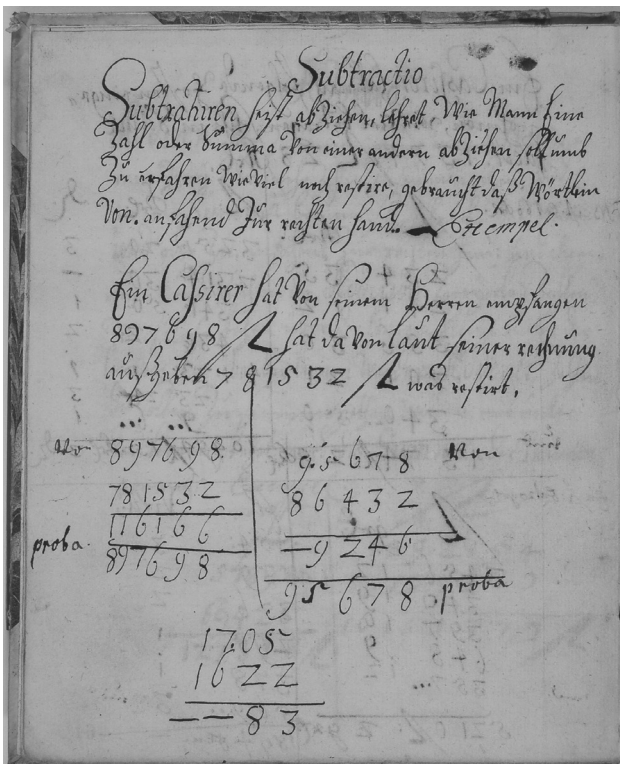 Subtractio
Subtrahiren heist abZiehen, lehret, Wie Mann Eine
Zahl oder Summa Von einer andern abZiehen soll umb
Zu erfahren wie viel noch restire, gebraucht daß Wörtlein
Von. anfahend Zur rechten hand. Exempel.
Ein Cassirer hat Von seinem Herren empfangen
897698 hat da von laut seiner rechnung
außgeben 781532 was restirt.
Von 897698
781532
116166
proba. 897698
95678 Von
86432
–9246
95678 proba
1705
1622
– – 83